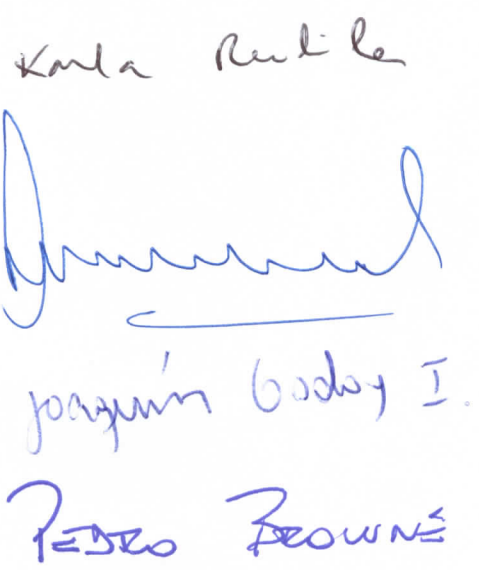 Karla Rubilar
Joaquín Godoy I.
PEDRO BROWNÉ